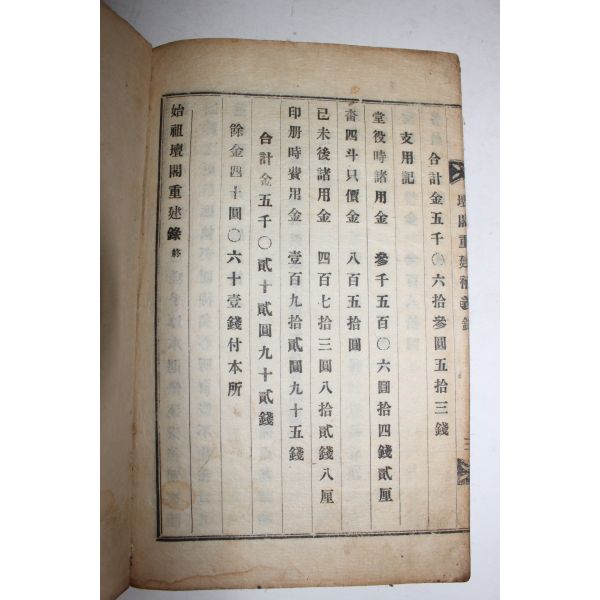 合計金五千〇六拾參圓五拾三錢
支用記
堂役時諸用金 參千五百〇六圓拾四錢貳厘
畓四斗只價金 八百五拾圓
已未後諸用金 四百七拾三圓八拾貳錢八厘
印册時費用金 壹百九拾貳圓九十五錢
合計金五千〇貳十貳圓九十貳錢
餘金四十圓〇六十壹錢付本所
始祖壇閣重建錄 終